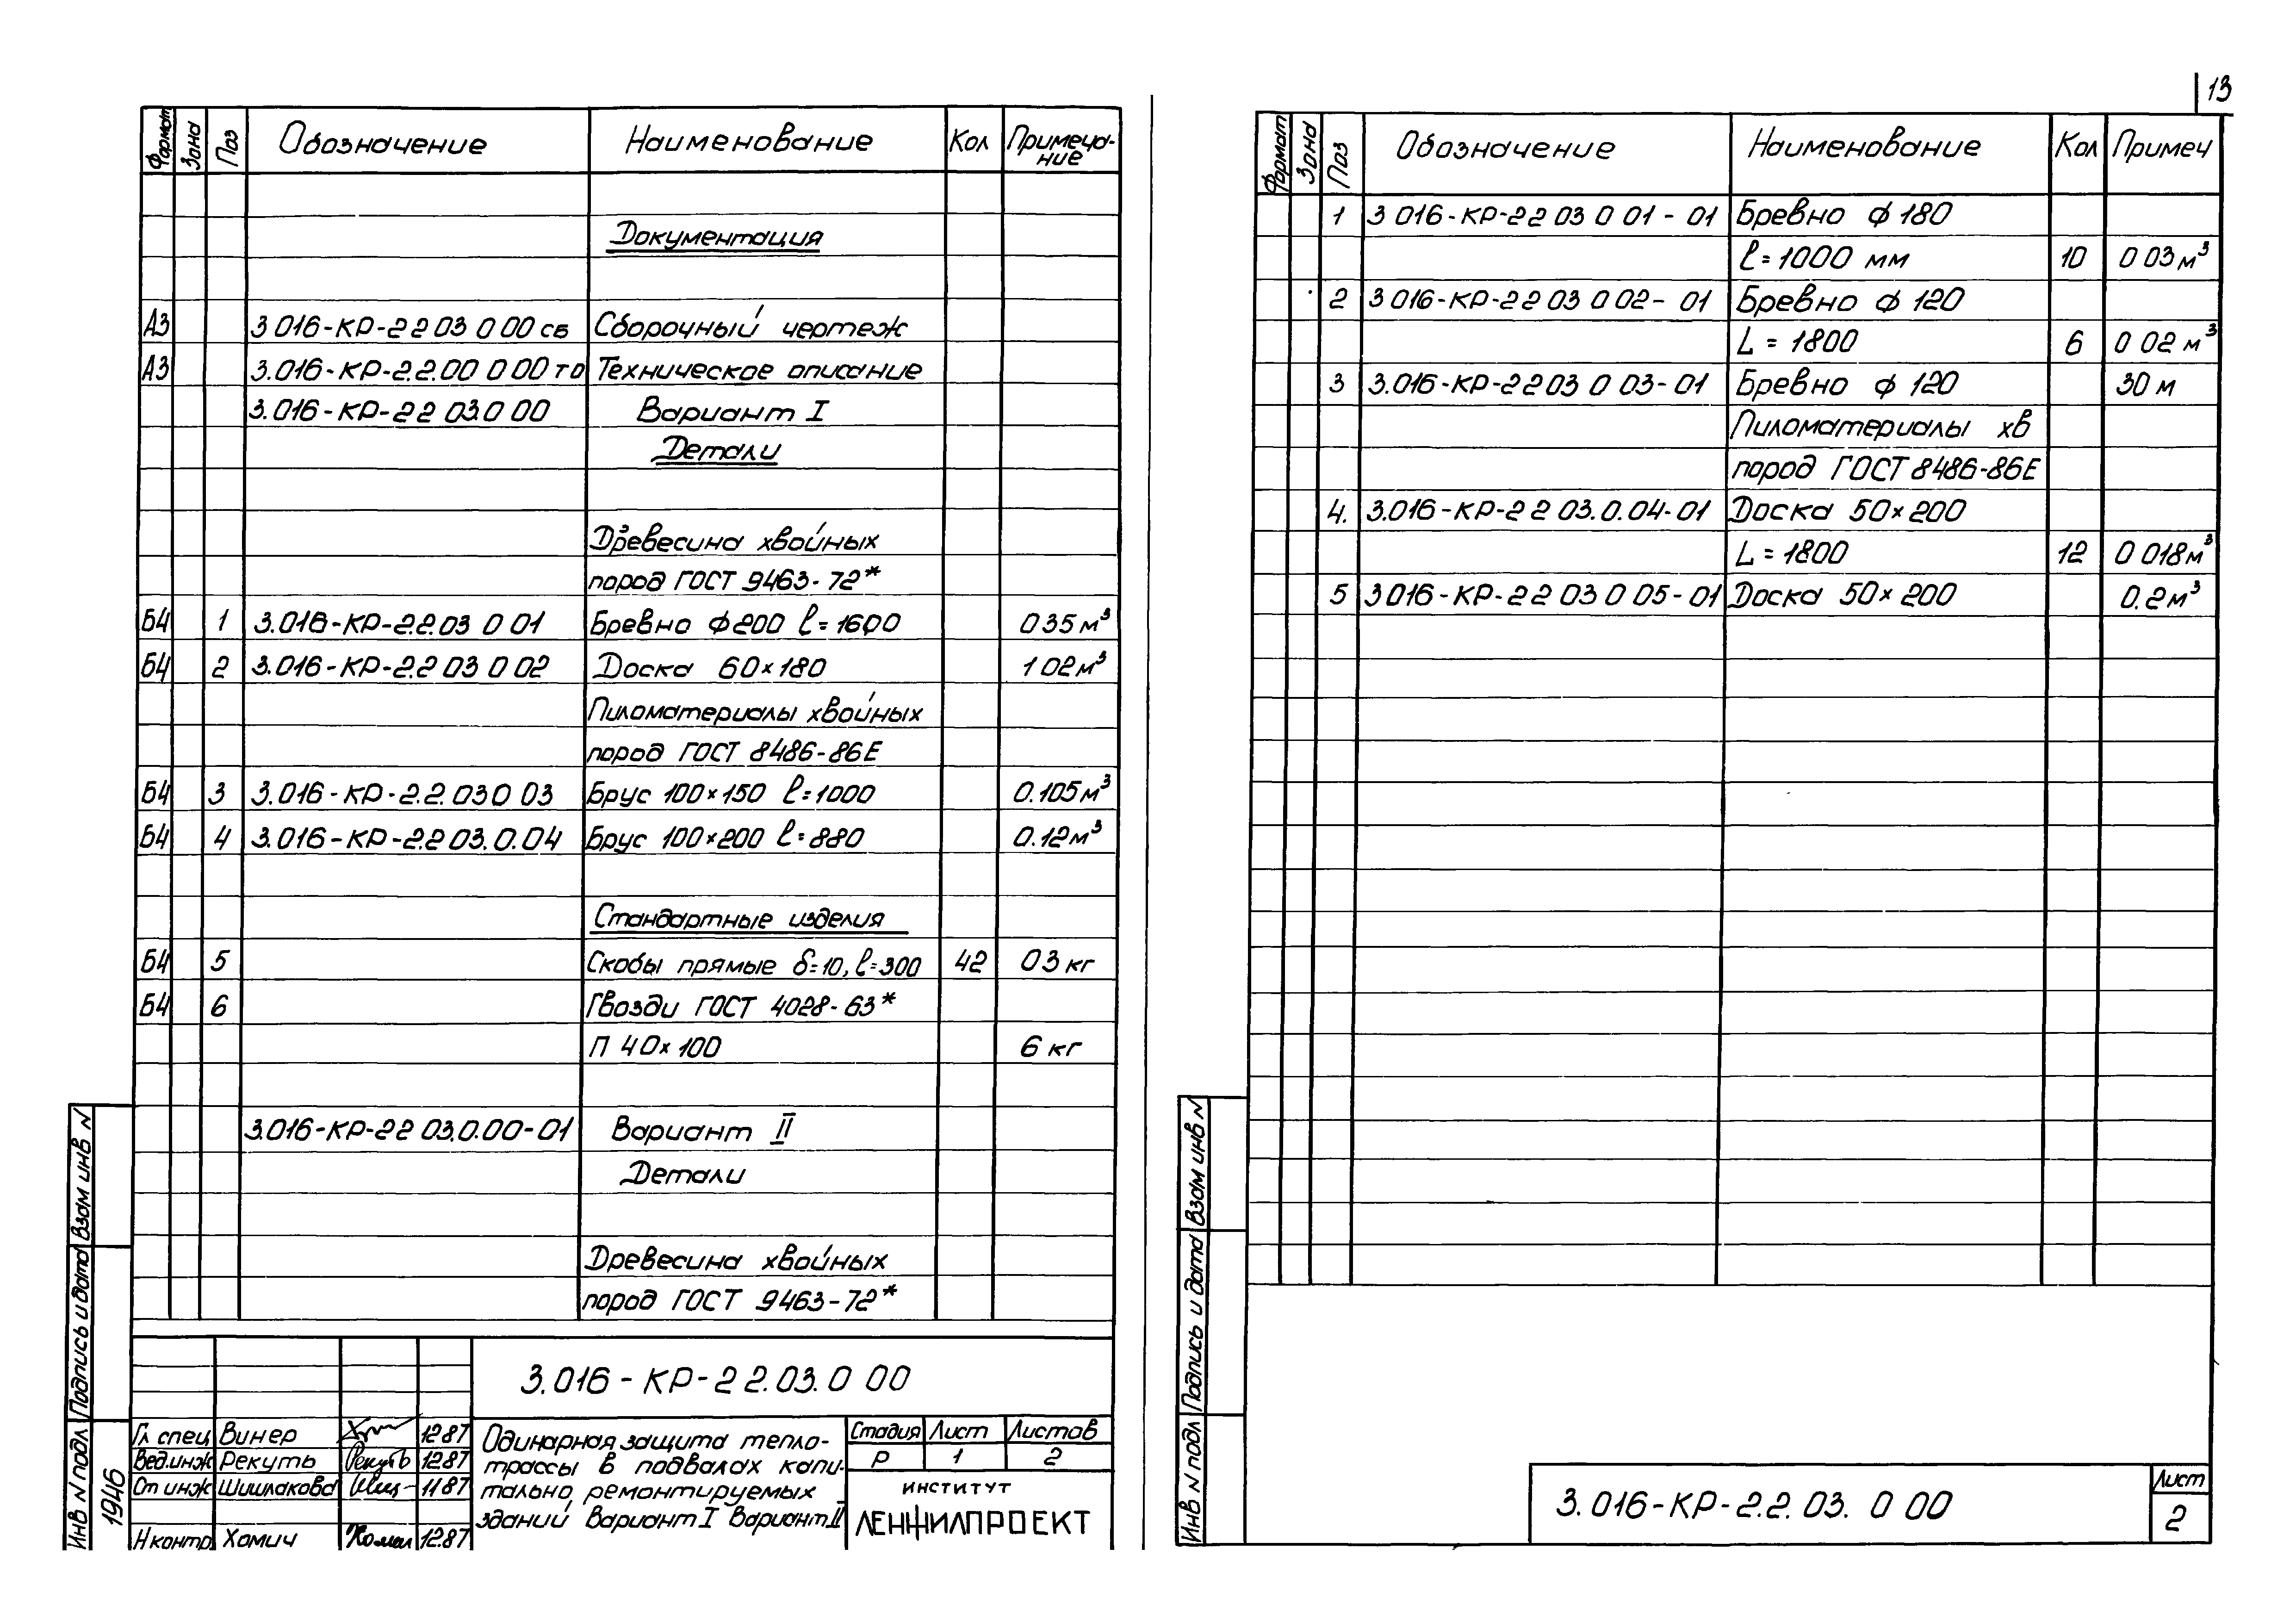 13
Формат Зона Поз Обозначение Наименование Кол Примеча-
ние
Документация
А3 3.016-КР-2.2 03 0 00 сб Сборочный чертеж
А3 3.016-КР-2.2.00 0 00 то Техническое описание
3.016-КР-2.2 03.0 00 Вариант I
Детали
Древесина хвойных
пород ГОСТ 9463-72*
Б4 1 3.016-КР-2.2.03 0 01 Бревно ф 200 ℓ=1600 0 35 м³
Б4 2 3.016-КР-2.2 03 0 02 Доска 60×180 1 02 м³
Пиломатериалы хвойных
пород ГОСТ 8486-86Е
Б4 3 3.016-КР-2.2.03 0 03 Брус 100×150 ℓ=1000 0.105 м³
Б4 4 3.016-КР-2.2 03.0.04 Брус 100×200 ℓ=880 0.12 м³
Стандартные изделия
Б4 5 Скобы прямые δ=10, ℓ=300 42 0 3 кг
Б4 6 Гвозди ГОСТ 4028-63*
П 4 0×100 6 кг
3.016-КР-2 2 03.0.00-01 Вариант II
Детали
Древесина хвойных
пород ГОСТ 9463-72*
Взам инв N
Подпись и дата
Инв N подл
1946
3.016-КР-2 2.03.0 00
Гл спец Винер 12 87
Вед.инж Рекуть Рекуть 12 87
Ст инж Шишлакова 11 87
Н контр Хомич 12.87
Одинарная защита тепло-
трассы в подвалах капи-
тально ремонтируемых
зданий Вариант I Вариант II
Стадия Лист Листов
Р 1 2
ИНСТИТУТ
ЛЕНЖИЛПРОЕКТ
Формат Зона Поз Обозначение Наименование Кол Примеч
1 3 016-КР-2 2 03 0 01-01 Бревно ф 180
ℓ=1000 мм 10 0 03 м³
2 3 016-КР-2 2 03 0 02-01 Бревно ф 120
L = 1800 6 0 02 м³
3 3.016-КР-2 2 03 0 03-01 Бревно ф 120 30 м
Пиломатериалы хв
пород ГОСТ 8486-86Е
4. 3.016-КР-2 2 03.0.04-01 Доска 50×200
L = 1800 12 0 018 м³
5 3 016-КР-2 2 03 0 05-01 Доска 50×200 0.2 м³
Взам инв N
Подпись и дата
Инв N подл
3.016-КР-2.2.03. 0 00
Лист
2